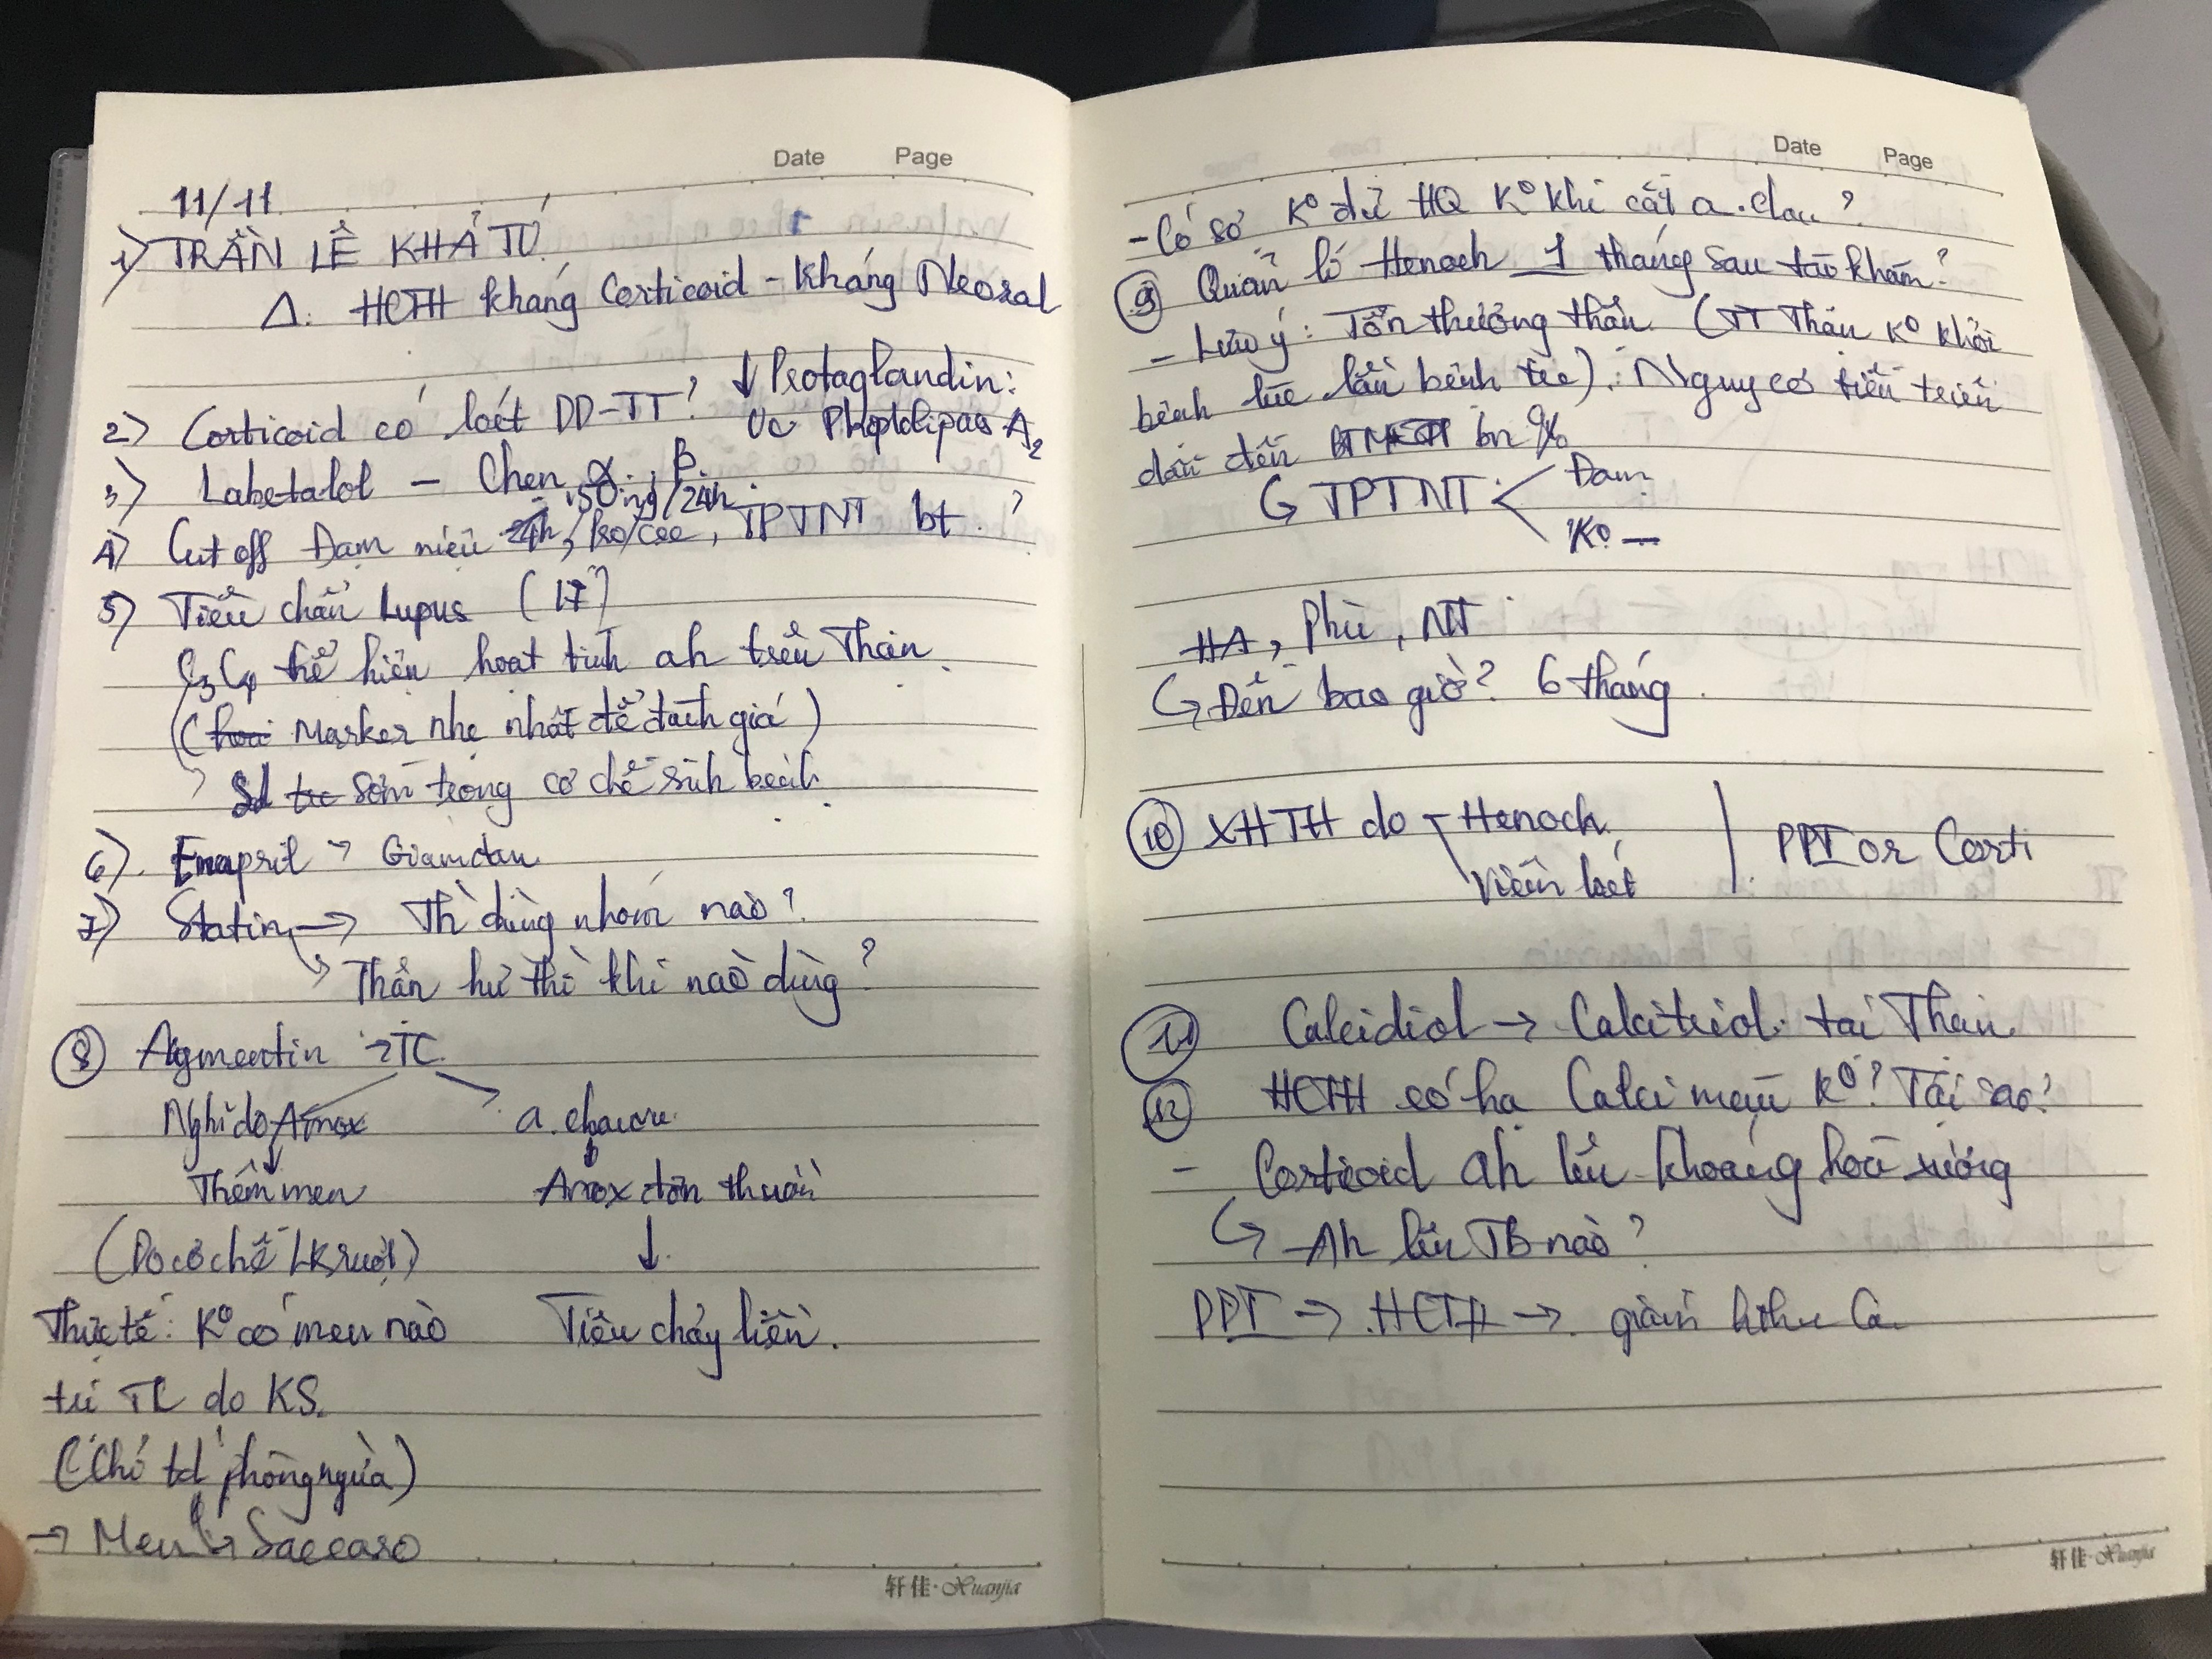 Date Page
11/11
1) TRẦN LÊ KHẢ TÚ
Δ. HCTH kháng Corticoid - Kháng Neoral
2) Corticoid có loét DD-TT? ↓ Protaglandin:
Ưc Phopholipas A2
3) Labetalol - Chẹn α, β.
150mg/24h
4) Cut off Đạm niệu 24h, Pro/Cre, TPTNT bt ?
5) Tiêu chẩn Lupus (17)
C3 C4 thể hiện hoạt tính ah trên Thận
(hoạ Marker nhẹ nhất để đánh giá)
→ Sd trc sớm trong cơ chế sinh bệnh
6) Enapril → Giảm đạm
7) Statin → Thì dùng nhóm nào?
↳ Thận hư thì khi nào dùng?
8 Agmentin → TC
Nghĩ do Amox a. clavu
Thêm men Amox đơn thuần
(Do cơ chế LK ruột) ↓
Thực tế: Ko có men nào Tiêu chảy liền.
trị TC do KS.
(Chỉ td phòng ngừa)
→ Men ↳ Saccaro
轩佳·Xuanjia
Date Page
- Có sợ Ko đủ HQ Ko khi cắt a.clau?
9 Quản lí Henoch 1 tháng sau tái khám?
- Lưu ý: Tổn thương thận (TT Thận Ko khởi
bệnh lúc lần bệnh trc). Nguy cơ tiến triển
dẫn đến bn %
↳ TPTNT < Đạm
Ko —
HA, Phù, NT
↳ Đến bao giờ? 6 tháng.
10 XHTH do Henoch
Viêm loét | PPI or Corti
11 Calcidiol → Calcitriol tại Thận
12 HCTH có hạ Calci máu Ko? Tại sao?
- Corticoid ah lên khoáng hoá xương
↳ Ah lên TB nào?
PPI → HCTH → giảm hthu Ca
轩佳·Xuanjia